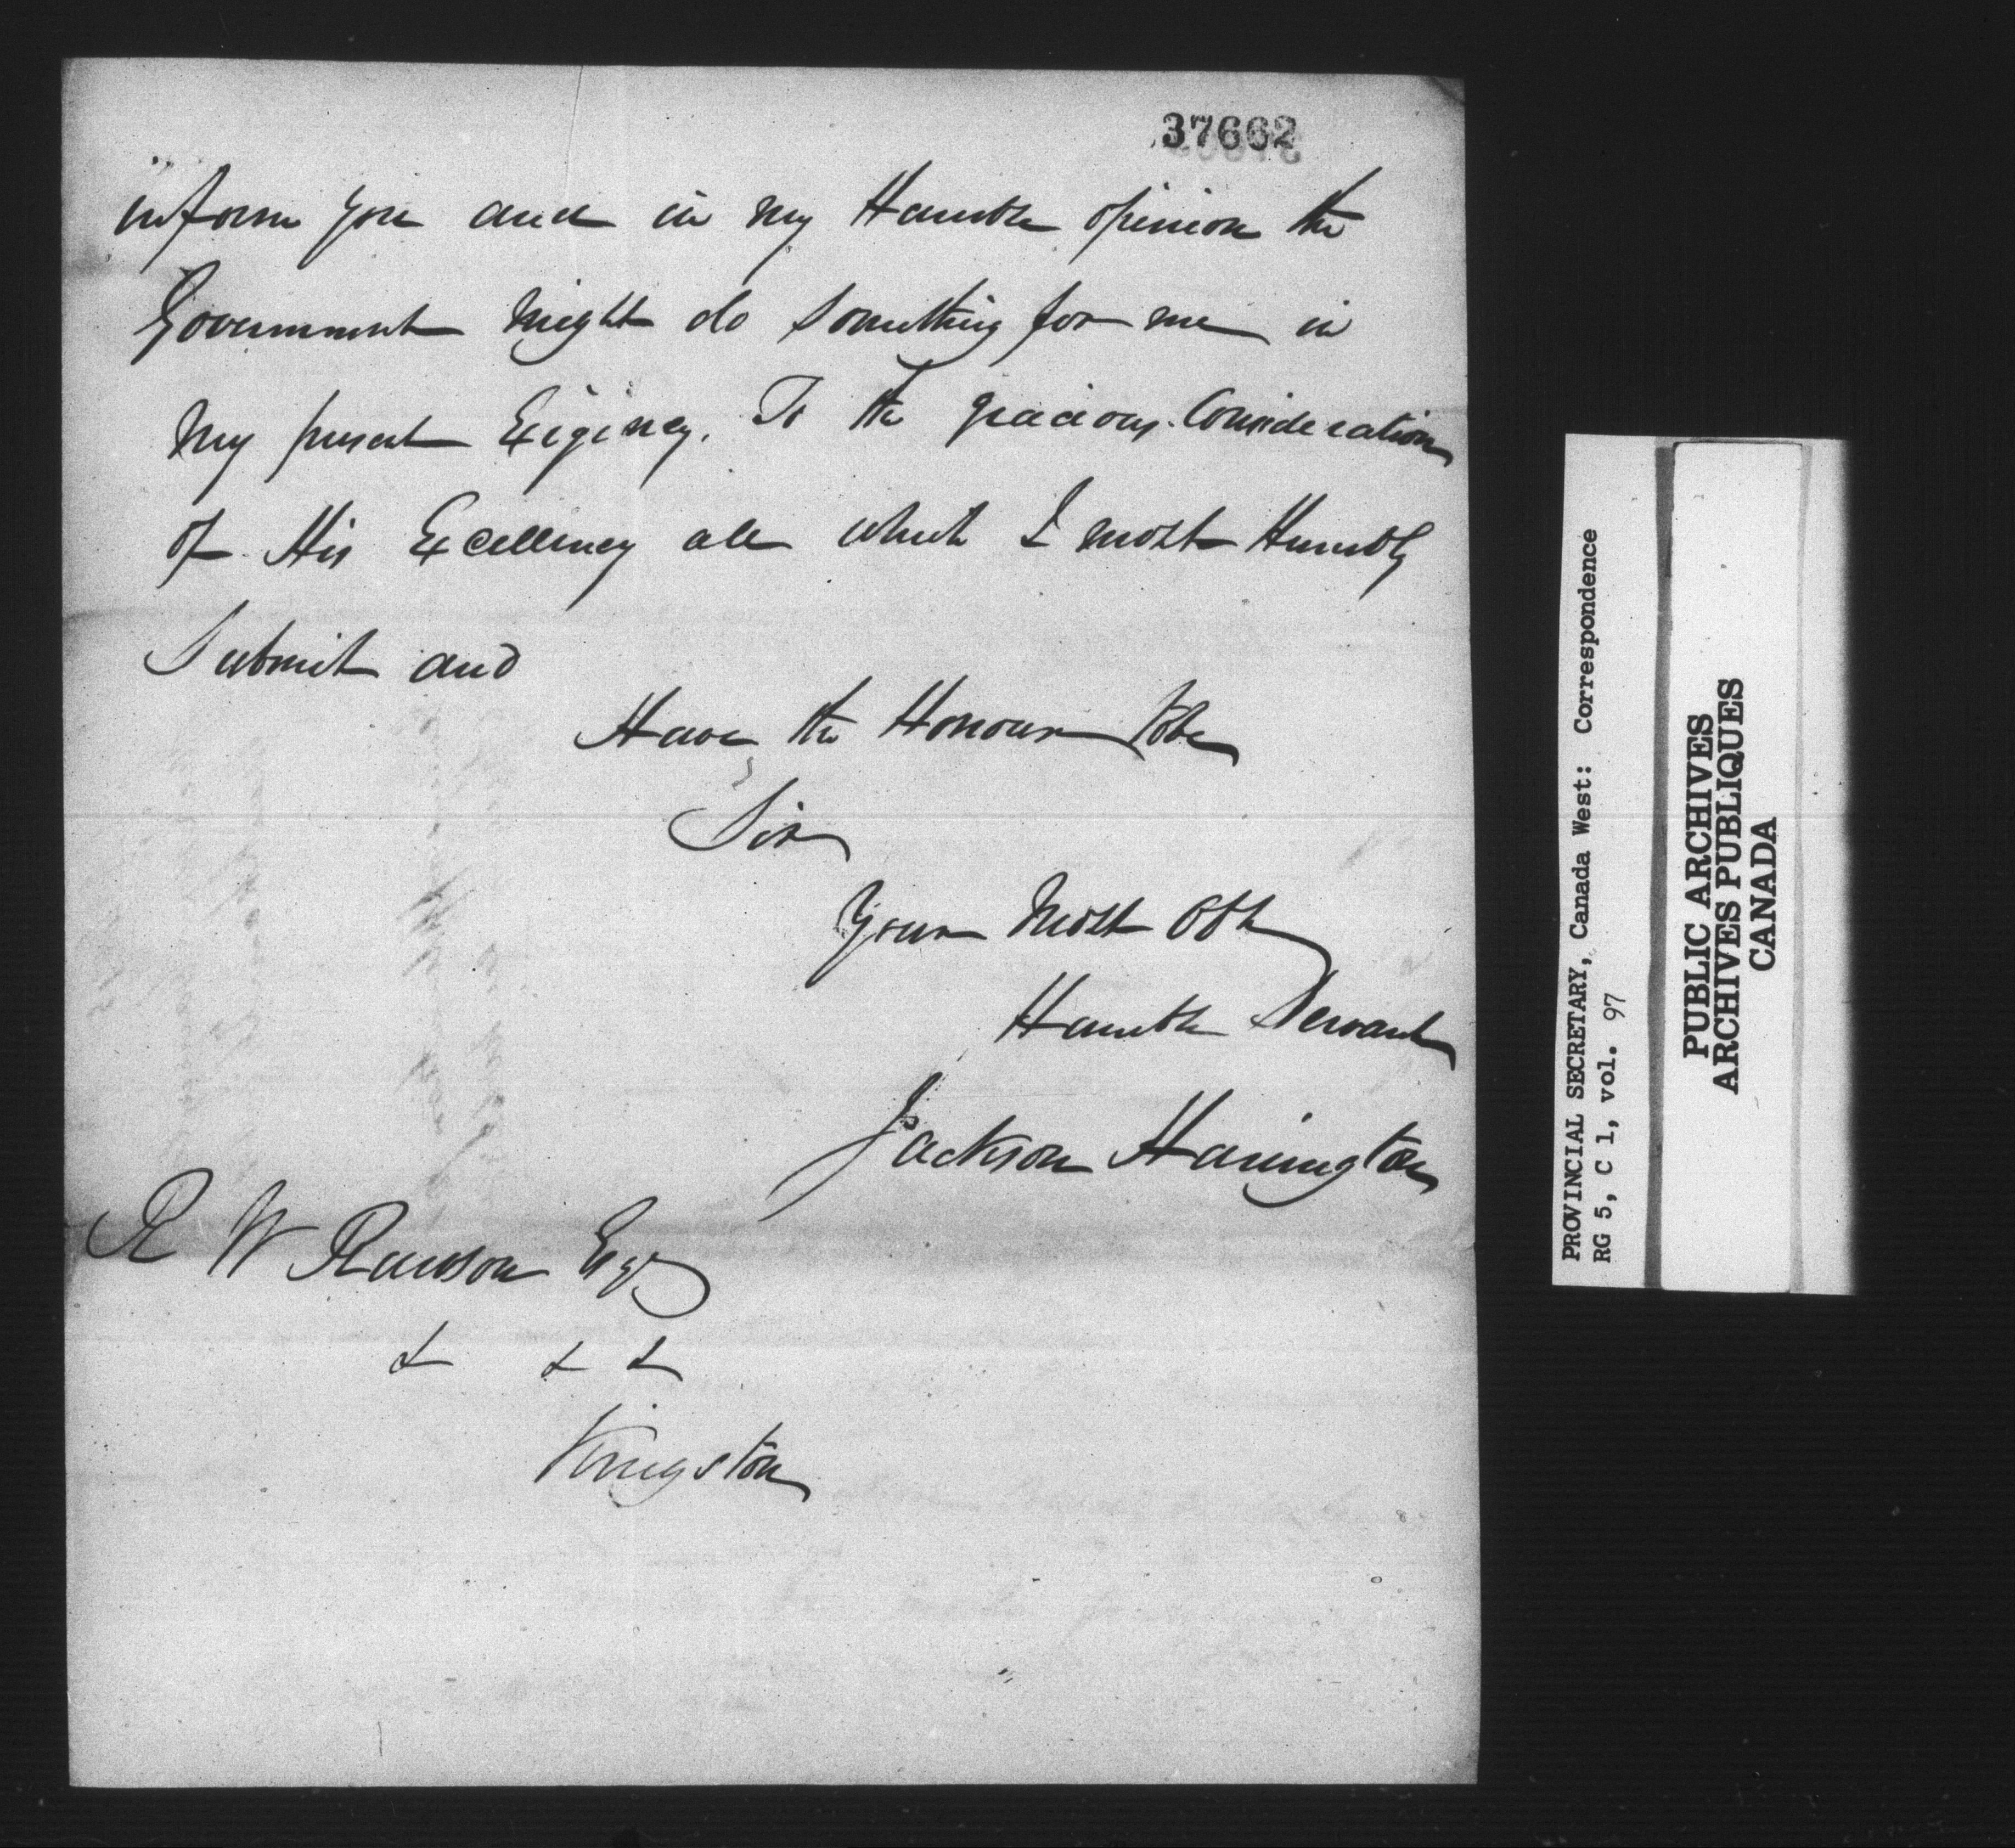 37662
inform you and in my Humble opinion the
Government Might do Something for me in
My present Exigincy. To the gracious Consideration
of His Excellency all which I most Humbly
Submit and
Have the Honour to be
Sir
Your Most Obt
Humble Servant
Jackson Harrington
R W Rawson Esqr
& & &
Kingston
PROVINCIAL SECRETARY, Canada West: Correspondence
RG 5, C 1, vol. 97
PUBLIC ARCHIVES
ARCHIVES PUBLIQUES
CANADA